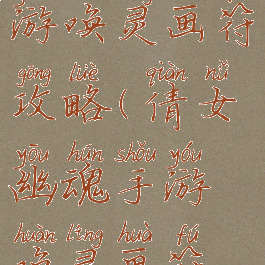 游唤灵画符
gōng lüè qiàn nǚ
攻略(倩女
yōu hún shǒu yóu
幽魂手游
huàn líng huà fú
唤灵画符